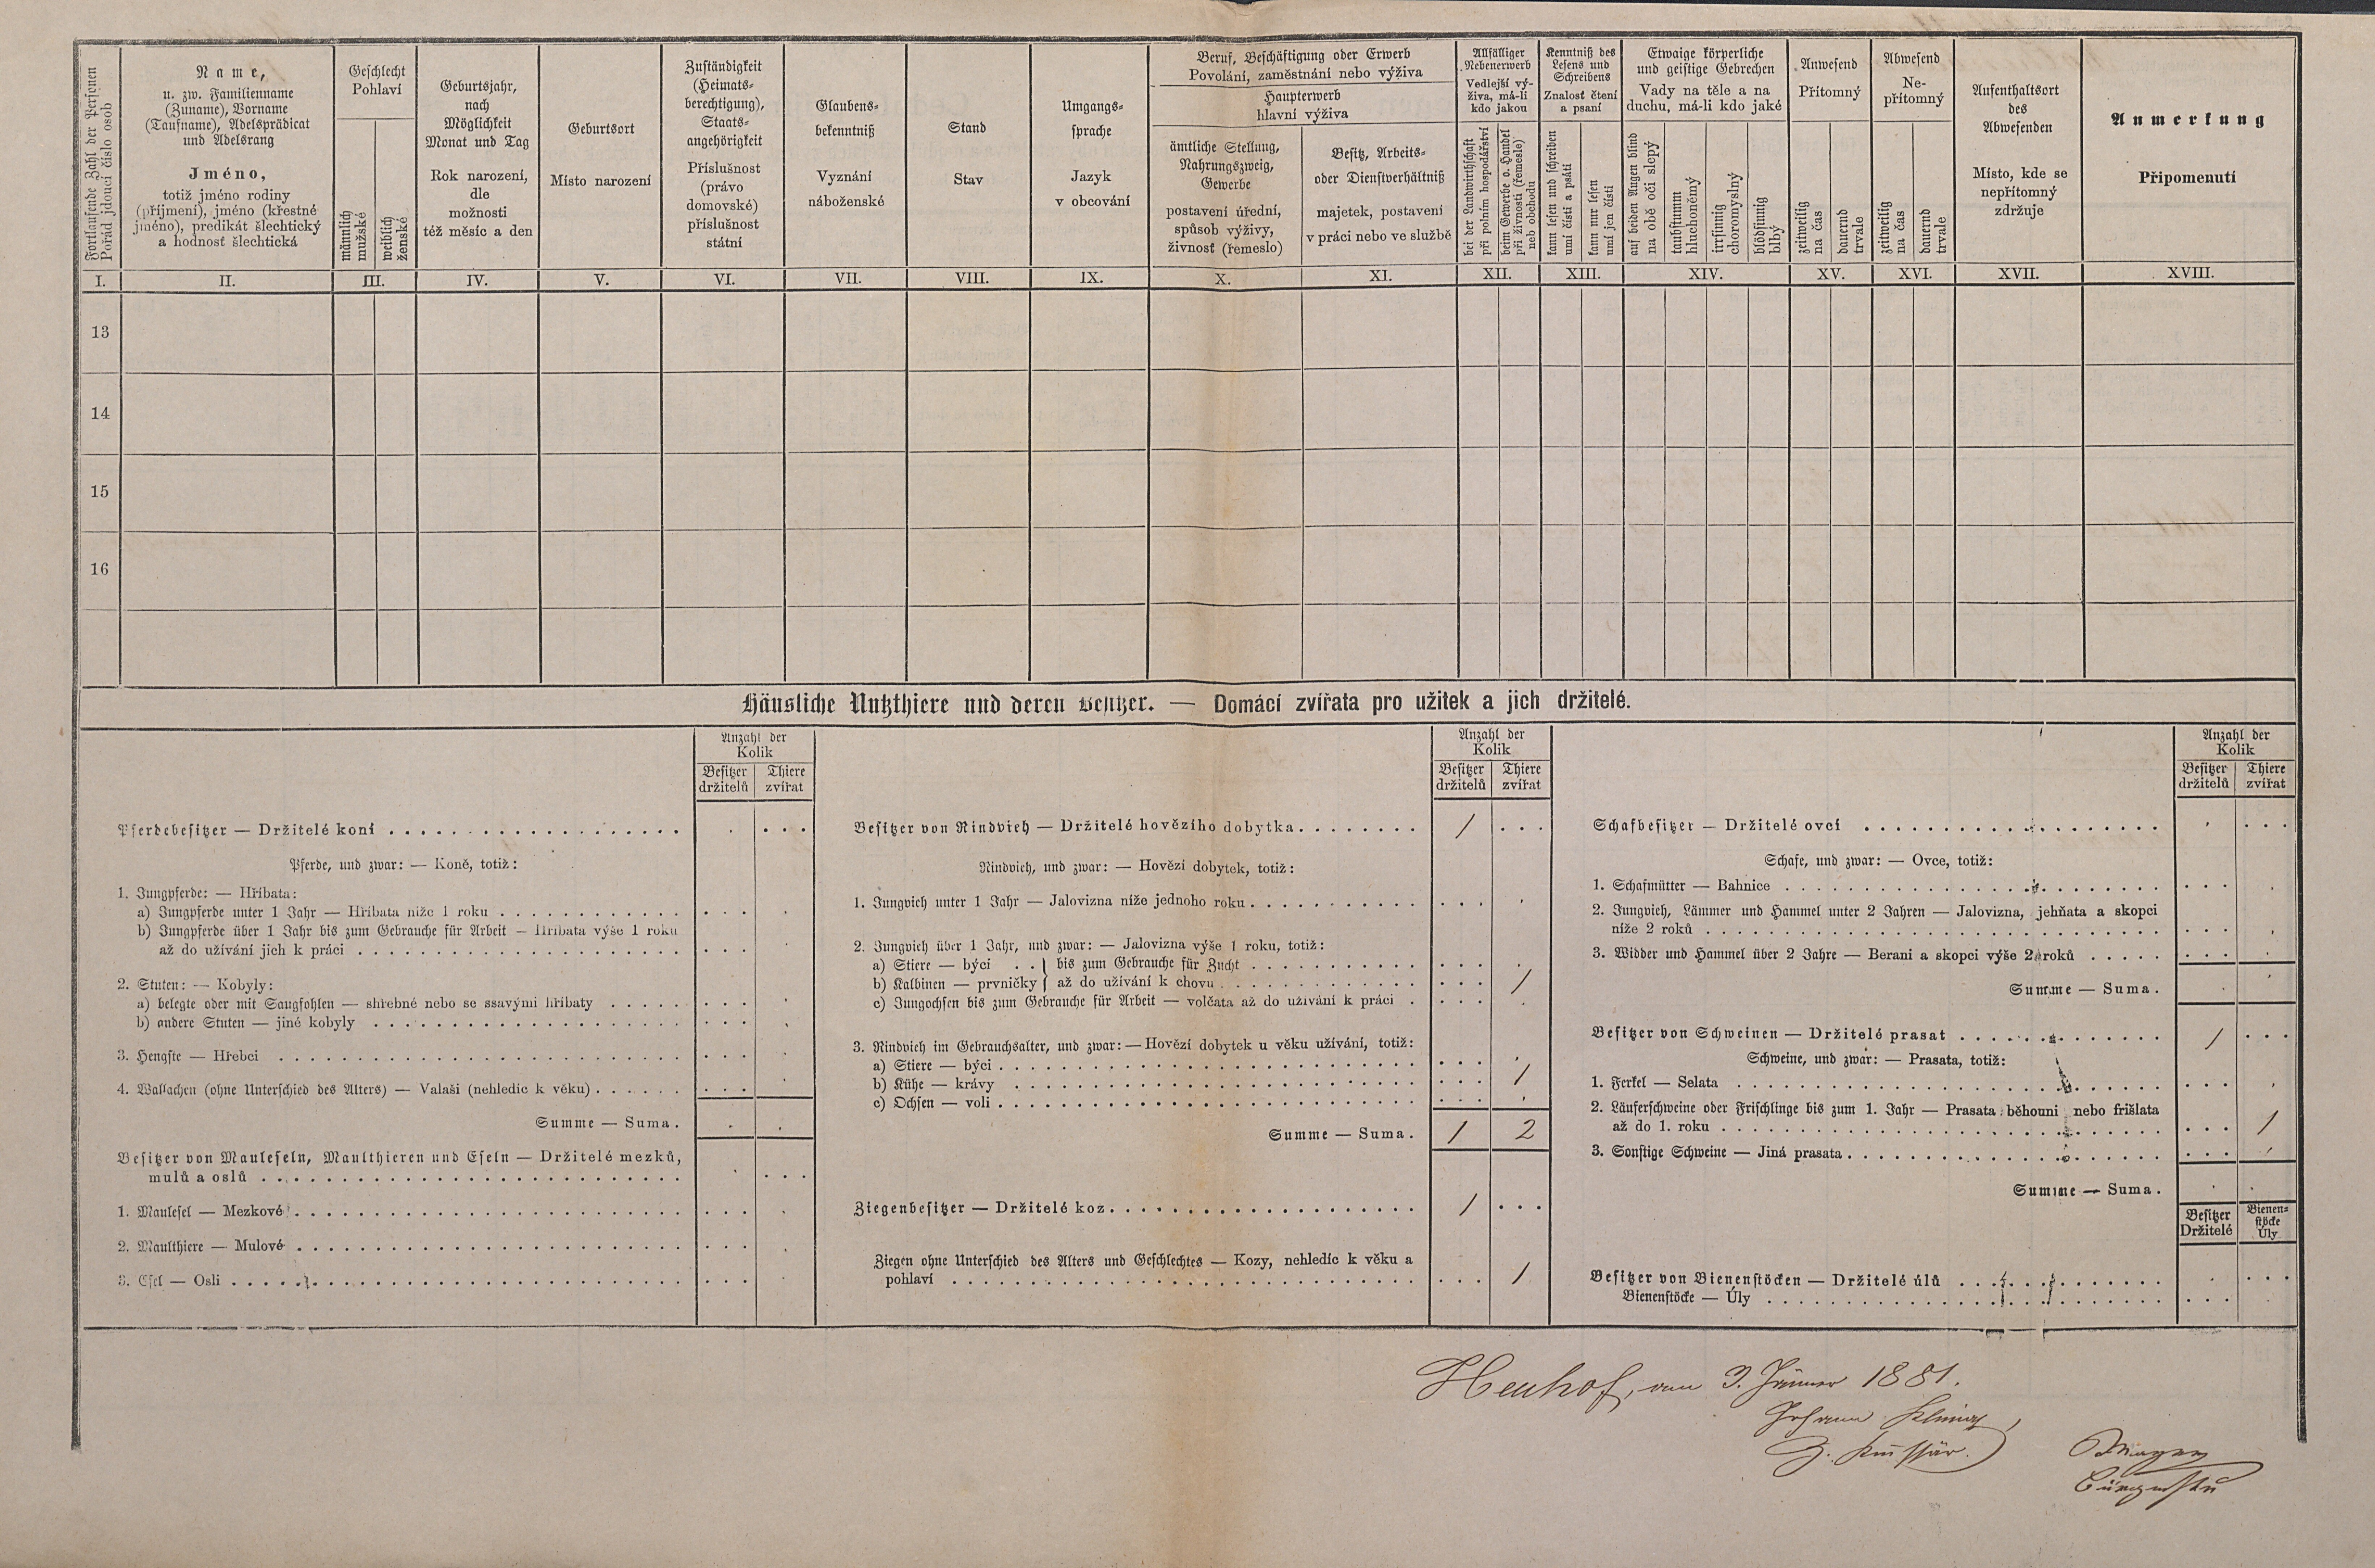 Fortlaufende Zahl der Personen
Pořád jdoucí číslo osob
Name,
u. zw. Familienname
(Zuname), Vorname
(Taufname), Adelsprädicat
und Adelsrang
Jméno,
totiž jméno rodiny
(příjmení), jméno (křestné
jméno), predikát šlechtický
a hodnosť šlechtická
Geschlecht
Pohlaví
männlich
mužské
weiblich
ženské
Geburtsjahr,
nach
Möglichkeit
Monat und Tag
Rok narození,
dle
možnosti
též měsíc a den
Geburtsort
Místo narození
Zuständigkeit
(Heimats-
berechtigung),
Staats-
angehörigkeit
Příslušnost
(právo
domovské)
příslušnost
státní
Glaubens-
bekenntniß
Vyznání
náboženské
Stand
Stav
Umgangs-
sprache
Jazyk
v obcování
Beruf, Beschäftigung oder Erwerb
Povolání, zaměstnání nebo výživa
Haupterwerb
hlavní výživa
ämtliche Stellung,
Nahrungszweig,
Gewerbe
postavení úřední,
spůsob výživy,
živnosť (řemeslo)
Besitz, Arbeits-
oder Dienstverhältniß
majetek, postavení
v práci nebo ve službě
Allfälliger
Nebenerwerb
Vedlejší vý-
živa, má-li
kdo jakou
bei der Landwirthschaft
při polním hospodářství
beim Gewerbe o. Handel
při živnosti (řemesle)
neb obchodu
Kenntniß des
Lesens und
Schreibens
Znalosť čtení
a psaní
kann lesen und schreiben
umí čísti a psáti
kann nur lesen
umí jen čísti
Etwaige körperliche
und geistige Gebrechen
Vady na těle a na
duchu, má-li kdo jaké
auf beiden Augen blind
na obě oči slepý
taubstumm
hluchoněmý
irrsinnig
choromyslný
blödsinnig
blbý
Anwesend
Přítomný
zeitweilig
na čas
dauernd
trvale
Abwesend
Ne-
přítomný
zeitweilig
na čas
dauernd
trvale
Aufenthaltsort
des
Abwesenden
Místo, kde se
nepřítomný
zdržuje
Anmerkung
Připomenutí
I. II. III. IV. V. VI. VII. VIII. IX. X. XI. XII. XIII. XIV. XV. XVI. XVII. XVIII.
13
14
15
16
Häusliche Nutzthiere und deren Besitzer. — Domácí zvířata pro užitek a jich držitelé.
Anzahl der
Kolik
Besitzer
držitelů
Thiere
zvířat
Pferdebesitzer — Držitelé koní
Pferde, und zwar: — Koně, totiž:
1. Jungpferde: — Hříbata:
a) Jungpferde unter 1 Jahr — Hříbata níže 1 roku
b) Jungpferde über 1 Jahr bis zum Gebrauche für Arbeit — Hříbata výše 1 roku
až do užívání jich k práci
2. Stuten: — Kobyly:
a) belegte oder mit Saugfohlen — shřebné nebo se ssavými hříbaty
b) andere Stuten — jiné kobyly
3. Hengste — Hřebci
4. Wallachen (ohne Unterschied des Alters) — Valaši (nehledíc k věku)
Summe — Suma.
Besitzer von Mauleseln, Maulthieren und Eseln — Držitelé mezků,
mulů a oslů
1. Maulesel — Mezkové
2. Maulthiere — Mulové
3. Esel — Osli
Anzahl der
Kolik
Besitzer
držitelů
Thiere
zvířat
Besitzer von Rindvieh — Držitelé hovězího dobytka 1
Rindvieh, und zwar: — Hovězí dobytek, totiž:
1. Jungvieh unter 1 Jahr — Jalovizna níže jednoho roku
2. Jungvieh über 1 Jahr, und zwar: — Jalovizna výše 1 roku, totiž:
a) Stiere — býci . . } bis zum Gebrauche für Zucht
b) Kalbinen — prvničky } až do užívání k chovu 1
c) Jungochsen bis zum Gebrauche für Arbeit — volčata až do užívání k práci
3. Rindvieh im Gebrauchsalter, und zwar: — Hovězí dobytek u věku užívání, totiž:
a) Stiere — býci
b) Kühe — krávy 1
c) Ochsen — voli
Summe — Suma. 1 2
Ziegenbesitzer — Držitelé koz 1
Ziegen ohne Unterschied des Alters und Geschlechtes — Kozy, nehledíc k věku a
pohlaví 1
Anzahl der
Kolik
Besitzer
držitelů
Thiere
zvířat
Schafbesitzer — Držitelé ovcí
Schafe, und zwar: — Ovce, totiž:
1. Schafmütter — Bahnice
2. Jungvieh, Lämmer und Hammel unter 2 Jahren — Jalovizna, jehňata a skopci
níže 2 roků
3. Widder und Hammel über 2 Jahre — Berani a skopci výše 2 roků
Summe — Suma.
Besitzer von Schweinen — Držitelé prasat 1
Schweine, und zwar: — Prasata, totiž:
1. Ferkel — Selata
2. Läuferschweine oder Frischlinge bis zum 1. Jahr — Prasata běhouni nebo frišlata
až do 1. roku 1
3. Sonstige Schweine — Jiná prasata
Summe — Suma.
Besitzer
Držitelé
Bienen-
stöcke
Úly
Besitzer von Bienenstöcken — Držitelé úlů
Bienenstöcke — Úly
Heuhof, am 3. Jänner 1881.
Johann
Z.